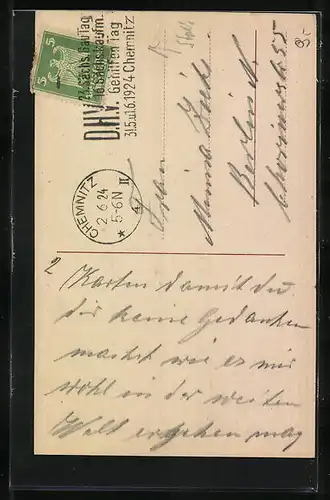 5 5
Sächs. Gau Tag
Sächs. Kaufm.
D.H.V. Gehilfen Tag
31.5.u.1.6.1924 Chemnitz
CHEMNITZ
2 6 24
5-6 N
II
* 4
Frau
Minna
Berlin N.
Chorinerstr 55
2 Karten damit du
dir keine Gedanken
machst wie es mir
wohl in der weiten
Welt ergehen mag